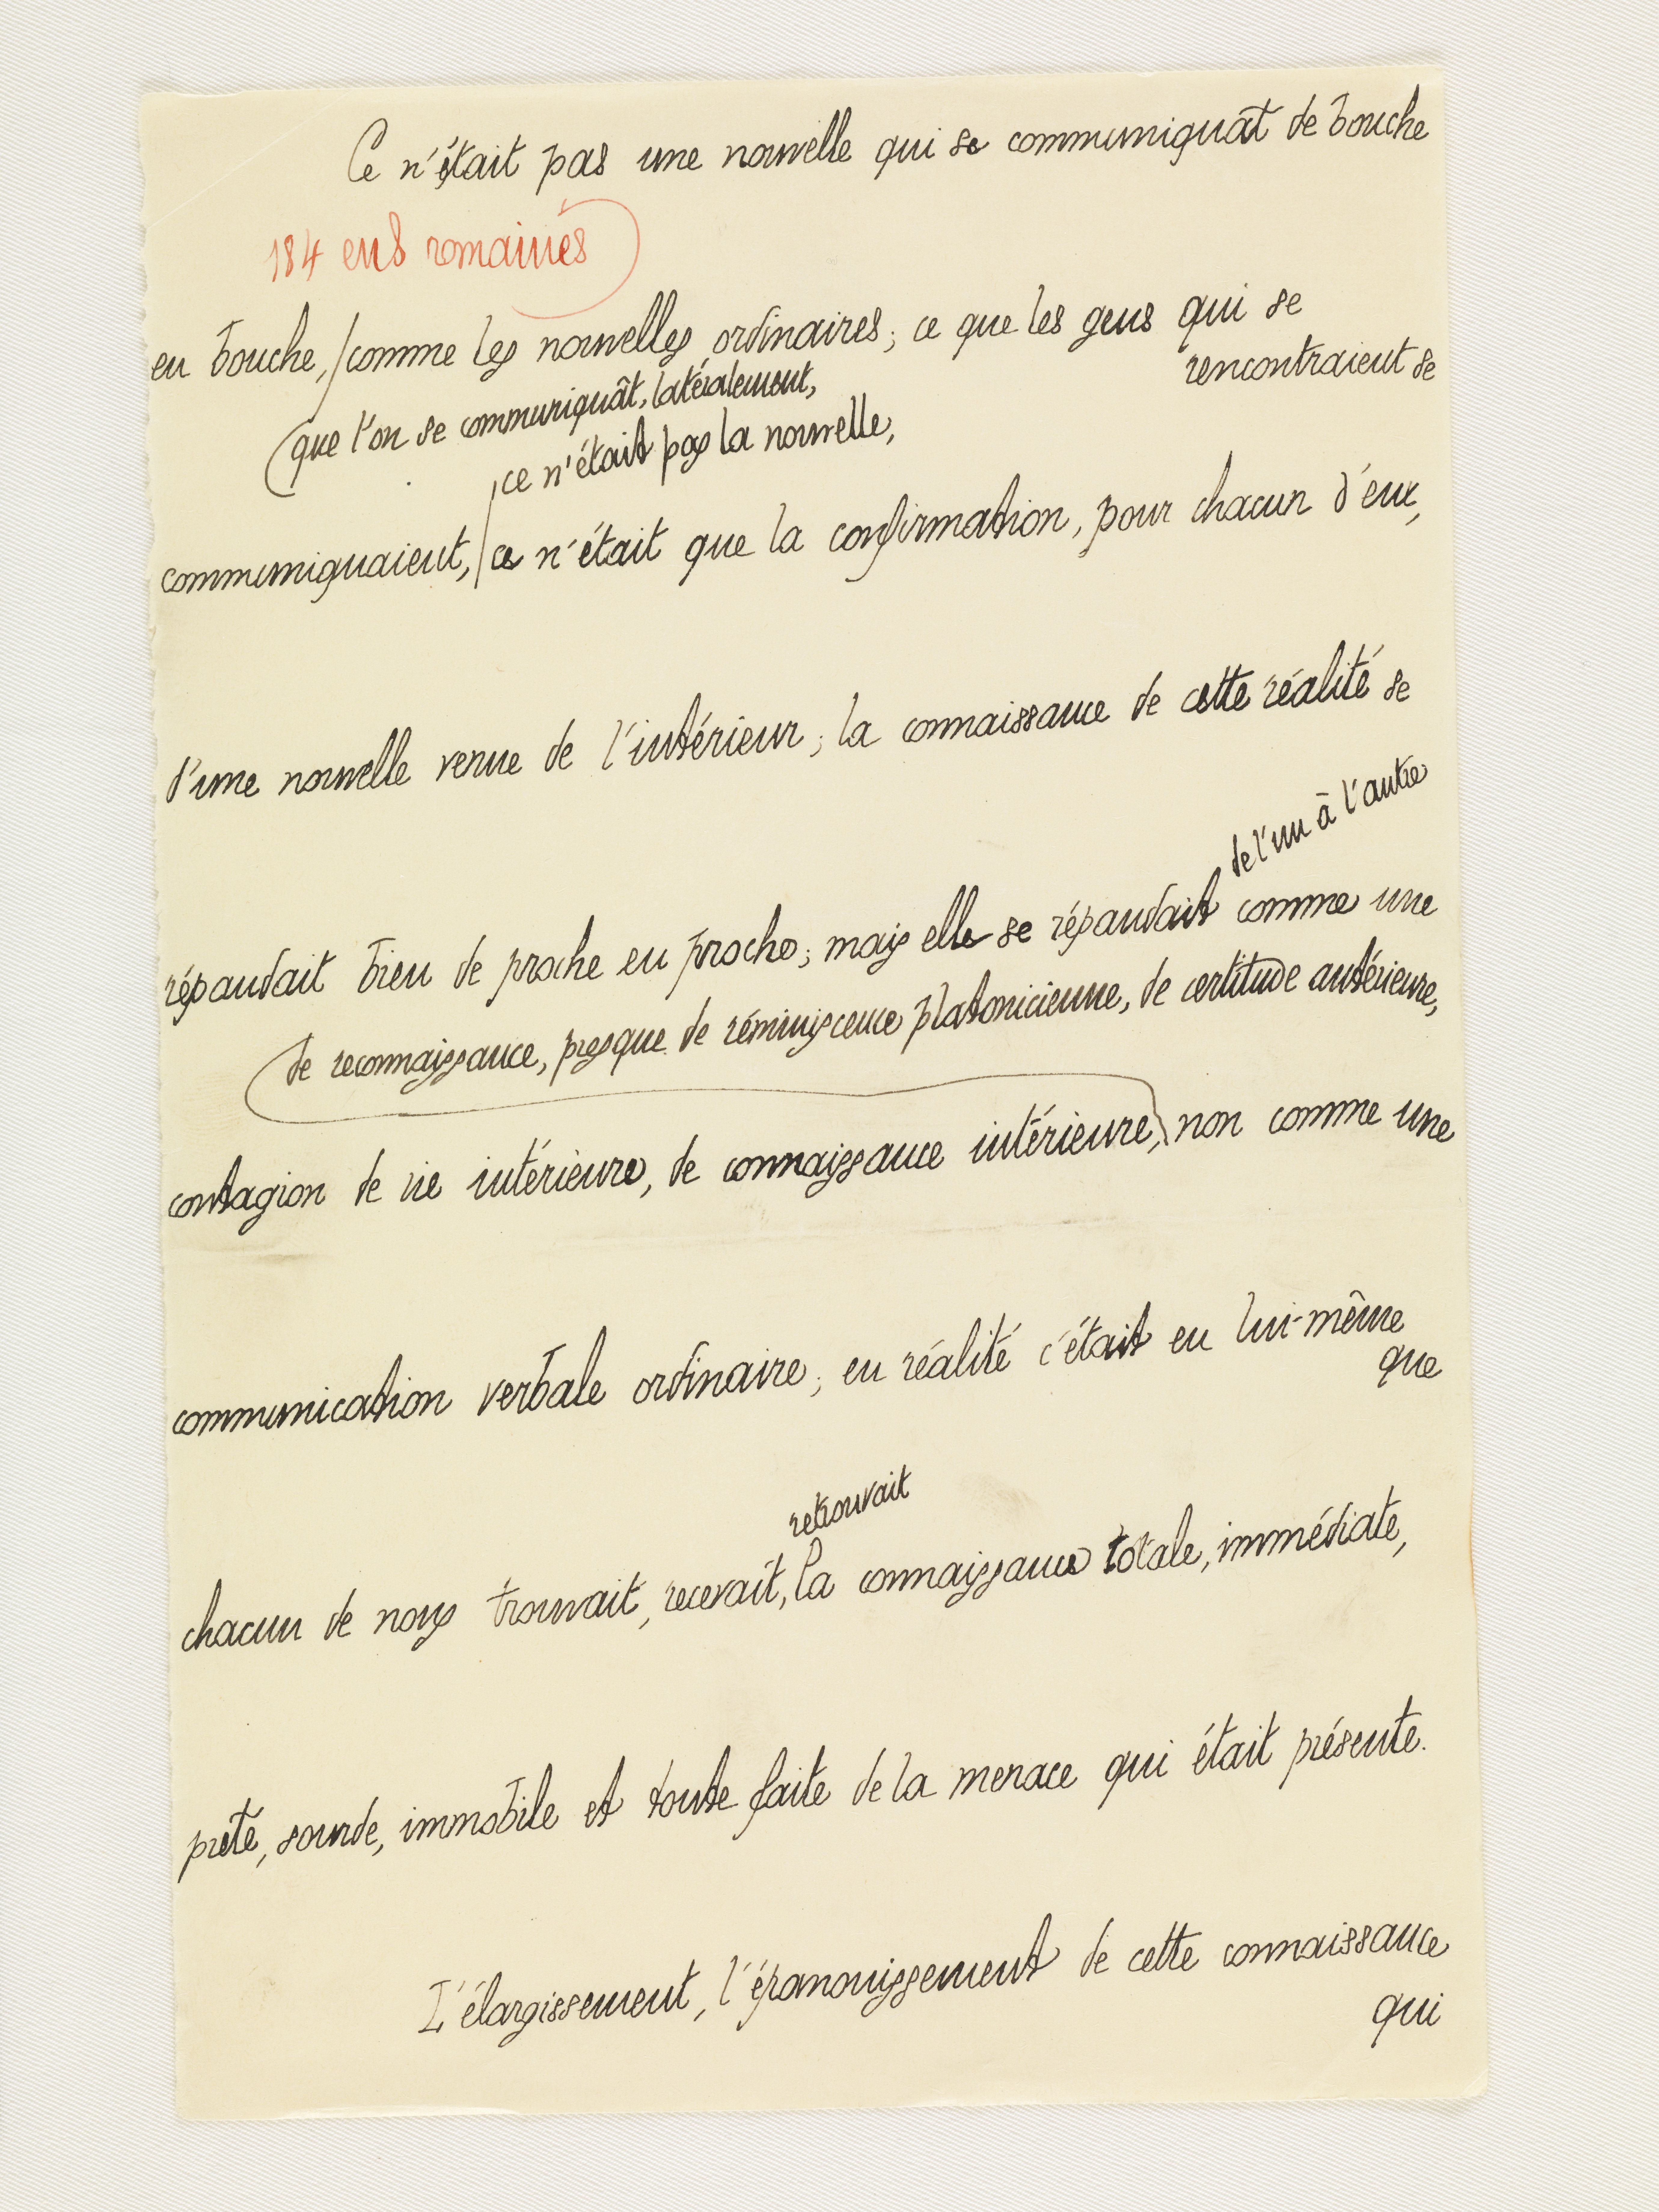 Ce n'était pas une nouvelle qui se communiquât de bouche
184 ens romaines
en bouche, comme les nouvelles ordinaires; ce que les gens qui se
rencontraient se
que l'on se communiquât, latéralement,
ce n'était pas la nouvelle,
communiquaient, ce n'était que la confirmation, pour chacun d'eux,
d'une nouvelle venue de l'intérieur; la connaissance de cette réalité se
de l'un à l'autre
répandait bien de proche en proche; mais elle se répandait comme une
de reconnaissance, presque de réminiscence platonicienne, de certitude antérieure,
contagion de vie intérieure, de connaissance intérieure, non comme une
communication verbale ordinaire; en réalité c'était en lui-même
que
retrouvait
chacun de nous trouvait, recevait, la connaissance totale, immédiate,
prête, sourde, immobile et toute faite de la menace qui était présente.
L'élargissement, l'épanouissement de cette connaissance
qui